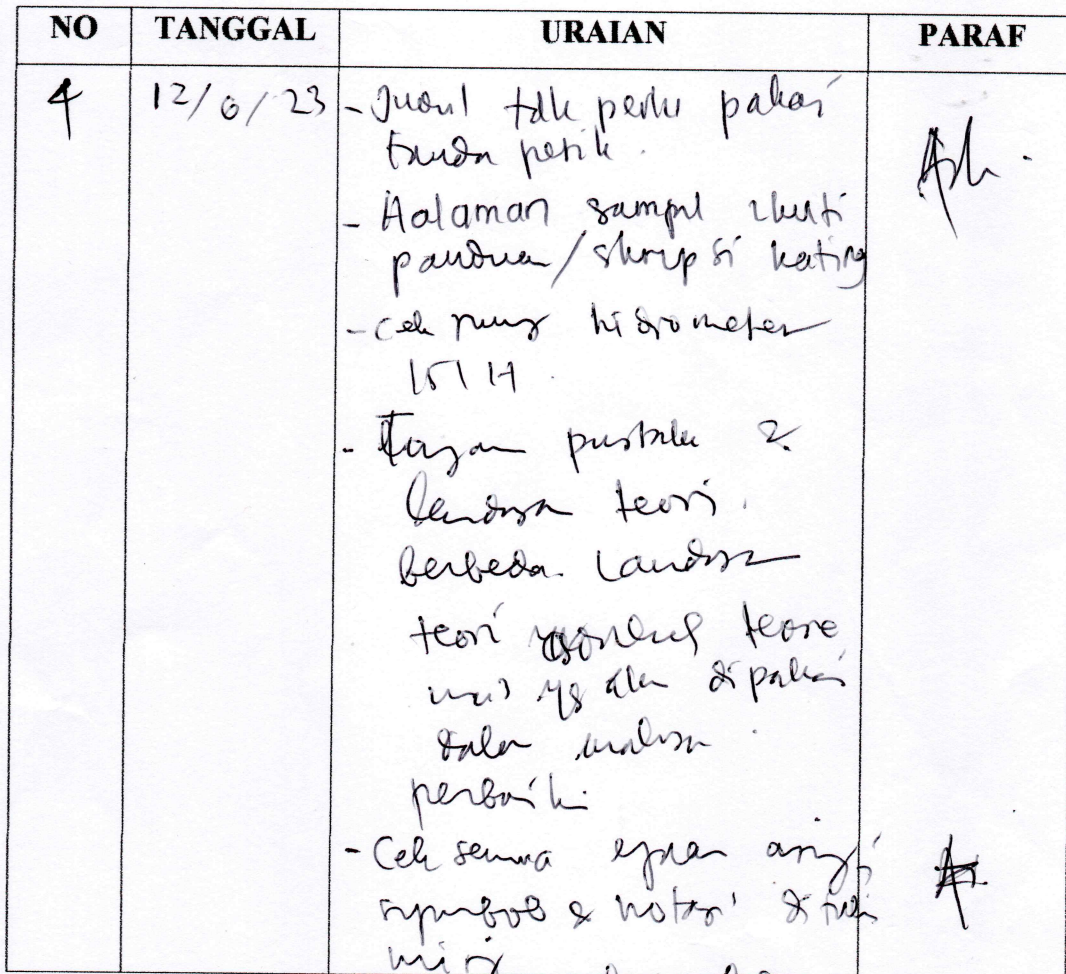 NO TANGGAL URAIAN PARAF
4 12/6/23 - Judul tdk perlu pakai
tanda petik.
- Halaman sampul ikuti
panduan/skripsi kating
- Cek hidrometer
151 H.
- Kajian pustaka &
landasan teori
berbeda. Landasan
teori teori
yg akan dipakai
dalam analisa
perbaiki
- Cek semua ejaan asing,
symbol & notasi ditulis
miring